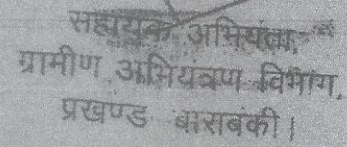 सहायक अभियंता,
ग्रामीण अभियंत्रण विभाग,
प्रखण्ड बाराबंकी।